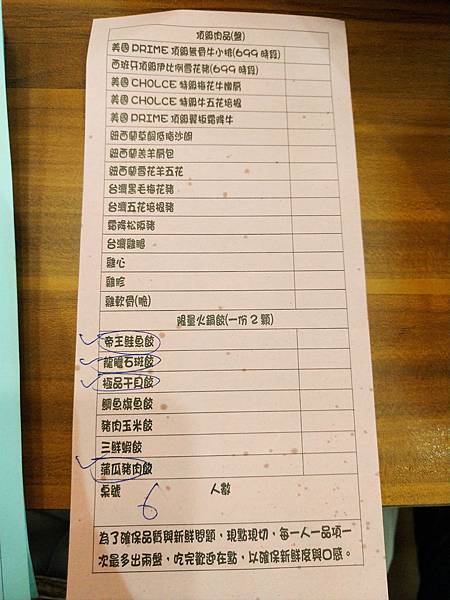 頂級肉品(盤)
美國 PRIME 頂級無骨牛小排(699 時段)
西班牙頂級伊比例雪花豬(699 時段)
美國 CHOLCE 特級梅花牛嫩肩
美國 CHOLCE 特級牛五花培根
美國 PRIME 頂級翼板霜降牛
紐西蘭草飼低脂沙朗
紐西蘭羔羊肩包
紐西蘭雪花羊五花
台灣黑毛梅花豬
台灣五花培根豬
霜降松阪豬
台灣雞腿
雞心
雞胗
雞軟骨(脆)
限量火鍋餃(一份 2 顆)
帝王鮭魚餃
龍膽石斑餃
極品干貝餃
鯛魚旗魚餃
豬肉玉米餃
三鮮蝦餃
蒲瓜豬肉餃
桌號 6 人數
為了確保品質與新鮮問題，現點現切，每一人一品項一
次最多出兩盤，吃完歡迎在點，以確保新鮮度與口感。